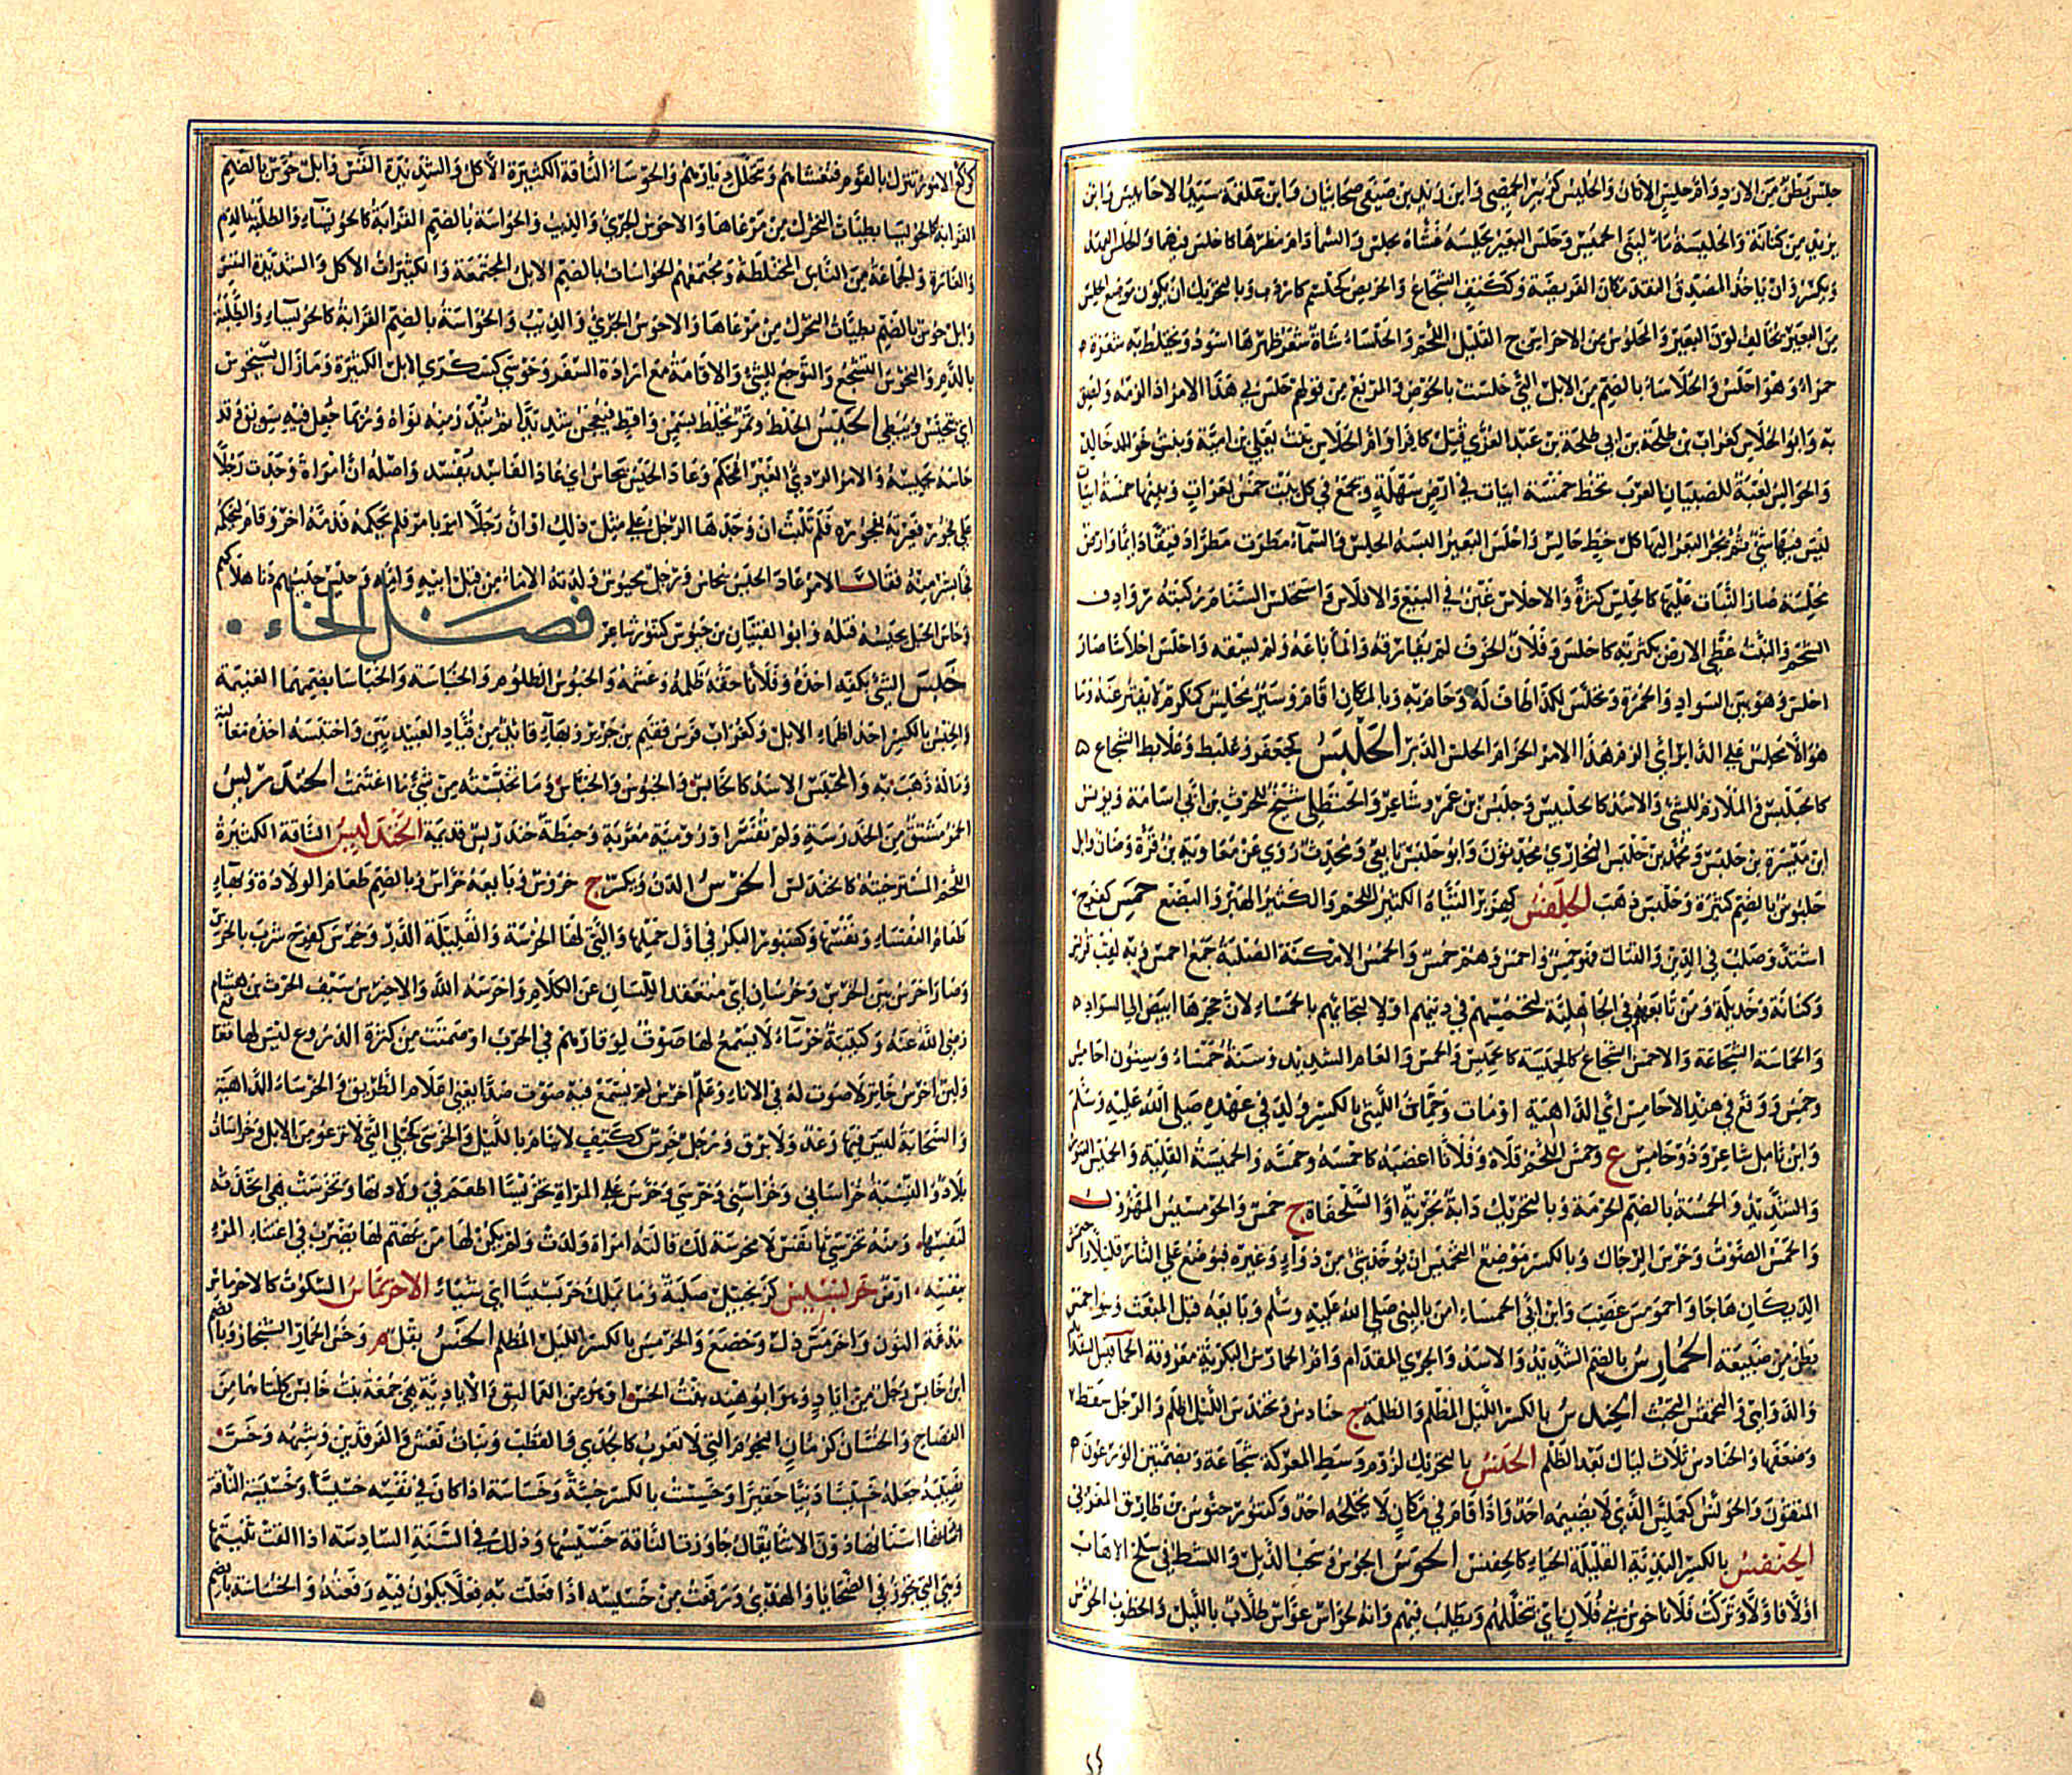 حلس بطن من الازد وام حلس الاتان والحليس كزبير الحمصي وابن زيد بن صيفي صحابيان وابن علقمة سيد الاحابيش وابن
يزيد من كنانة والحليسية ماء لبني الحليس وحلس البعير يحلسه غشاه بحلس والسماء دام مطرها كاحلس فيهما والحلس العهد
ويكسر وان ياخذ المصدق النقد مكان الفريضة وككتف الشجاع والحريص كحلسم كاردب وبالتحريك ان يكون موضع الحلس
من البعير يخالف لون البعير والمحلوس من الاحراح القليل اللحم والحلساء شاة شعر ظهرها اسود ويختلط به شعرة
حمراء وهو احلس والحلاساء بالضم من الابل التي حلست بالحوض والمرتع من قولهم حلس بي هذا الامر اذا لزمه ولصق
به وابو الحلاس كغراب بن طلحة بن ابي طلحة بن عبد العزى قتل كافرا وام الحلاس بنت يعلى بن امية وبنت خالد
والحوالس لعبة للصبيان العرب تخط خمسة ابيات في ارض سهلة ويجمع في كل بيت خمس بعرات وبينها خمسة ابيات
ليس فيها شيء ثم يجر البعر اليها كل خط حالس واحلس البعير البسه الحلس والسماء مطرت مطرا رقيقا دائما وارض
محلسة صار النبات عليها كالحلس كثرة والاحلاس غبن في البيع والافلاس واستحلس السنام ركبته روادف
الشحم والنبت غطى الارض بكثرته كاحلس وفلان الخوف لم يفارقه والماء باعه ولم يسقه واحلس احلاسا صار
احلس وهو بين السواد والحمرة وتحلس لكذا طاف له وحام به وبالمكان اقام وسير محلس كمكرم لا يفتر عنه وما
هو الا محلس على الدبر اي الزم هذا الامر الزام الحلس الدبر الحلبس كجعفر وعلبط وعلابط الشجاع
كالحبلبس والملازم للشيء والاسد كالحلبيس وحلبس بن عمرو شاعر والحنظلي شيخ للحرث بن ابي اسامة ويونس
ابن ميسرة بن حلبس ومحمد بن حلبس البخاري محدثون وابو حلبس تابعي ومحدث روى عن معاوية بن قرة وضان وابل
حلبوس بالضم كثيرة وحلبس ذهب الحلفس كهزبر الشاة الكثير اللحم والكثير الهبر والبضع حمس كفرح
اشتد وصلب في الدين والقتال فهو حمس واحمس وهم حمس والحمس الامكنة الصلبة جمع احمس وبه لقب قريش
وكنانة وجديلة ومن تابعهم في الجاهلية لتحمسهم في دينهم او لالتجائهم بالحمساء لان حجرها ابيض الى السواد
والحماسة الشجاعة والاحمس الشجاع كالحميس كالحمس والحمس والعام الشديد وسنة حمساء وسنون احامس
وحمس ووقع في هند الاحامس اي الداهية او مات وحماس الليثي بالكسر ولد في عهده صلى الله عليه وسلم
وابن ثامل شاعر وذو حماس ع وحمس اللحم قلاه وفلانا اغضبه كاحمسه وحمسه والحميسة القلية والحميس التنور
والشديد والحمسة بالضم الحرمة وبالتحريك دابة بحرية او السلحفاة ج حمس والحومسيس المهزول
والحمس الصوت وجرس الرجال وبالكسر موضع والتحميس ان يؤخذ شيء من دواء وغيره فيوضع على النار قليلا واحتمس
الديكان هاجا واحومس غضب وابن ابي الحمساء امن بالنبي صلى الله عليه وسلم وتابعه قبل المبعث وبنو احمس
بطن من ضبيعة الحمارس بالضم الشديد والاسد والجري المقدام وام الحمارس البكرية معروفة الحماقيس الشدائد
والدواهي والتحمقس التخبث الحندس بالكسر الليل المظلم والظلمة ج حنادس وتحندس الليل اظلم والرجل سقط
وضعف والحنادس ثلاث ليال بعد الظلم الحنس بالتحريك لزوم وسط المعركة شجاعة وبضمتين الورعون
المتقون والحونس كعملس الذي لا يضيمه احد واذا قام في مكان لا يحلحله احد وكتنور حنوس بن طارق المغربي
الحنفس بالكسر البذية القليلة الحياء كالحفنس الحوس الجوس وسحب الذيل والكشط في سلخ الاهاب
اولا فاولا وتركت فلانا يحوس بني فلان اي يتخللهم ويطلب فيهم وانه لحواس عواس طلاب بالليل والخطوب الحوس
كركع الامور تنزل بالقوم فتغشاهم وتتخلل ديارهم والحوساء الناقة الكثيرة الاكل والشديدة النفس وابل حوس بالضم
القرابة كالحويساء بطيات التحرك من مرعاها والاحوس الجري والذيب والحواسة بالضم القرابة كالحويساء والطلبة بالدم
والغارة والجماعة من الناس المختلطة ومجتمعهم والحواسات بالضم الابل المجتمعة والكثيرات الاكل والشديدة النفس
وابل حوس بالضم بطيات التحرك من مرعاها والاحوس الجري والذيب والحواسة بالضم القرابة كالحويساء والطلبة
بالدم والتحوس التشجع والتوجع للشيء والاقامة مع ارادة السفر وحوسى كسكرى الابل الكثيرة وما زال يستحوس
اي يتحبس ويبطي الحيس الخلط وتمر يخلط بسمن واقط فيعجن شديدا ثم يندر منه نواه وربما جعل فيه سويق وقد
حاسه يحيسه والامر الردي الغير المحكم وعاد الحيس يحاس اي عاد الفاسد يفسد واصله ان امراة وجدت رجلا
على فجور فعيرته فجوره فلم تلبث ان وجدها الرجل على مثل ذلك او ان رجلا امر بامر فلم يحكمه فذمه اخر وقام ليحكمه
فجاء بشر منه فقال الامر عاد الحيس يحاس ورجل محيوس ولدته الاماء من قبل ابيه وامه وحيس حيسهم دنا هلاكهم
وحاس الحبل يحيسه فتله وابو الفتيان بن حيوس كتنور شاعر فصل الخاء
خبس الشيء بكفه اخذه وفلانا حقه ظلمه وغشمه والخبوس الظلوم والخباسة والخباساء بضمهما الغنيمة
والخبس بالكسر احد اظماء الابل وكغراب فرس فقيم بن جرير وبهاء قائد من قواد العبيديين واختبسه اخذه مغالبة
وماله ذهب به والمختبس الاسد كالخابس والخبوس والخباس وما تخبست من شيء ما اغتنمت الخندريس
الخمر مشتق من الخدرسة ولم تفسر او رومية معربة وحنطة خندريس قديمة الخندليس الناقة الكثيرة
اللحم المسترخية كالخندلس الخرس الدن ويكسر ج خروس وبايعه خراس وبالضم طعام الولادة وبهاء
طعام النفساء ونفسها وكصبور البكر في اول حملها والتي لها الخرسة والقليلة الدر وخرس كفرح شرب بالخرس
وصار اخرس بين الخرس وخرسان اي منعقد اللسان عن الكلام واخرسه الله والاخيرس سيف الحرث بن هشام
رضي الله عنه وكتيبة خرساء لا يسمع لها صوت لوقارهم في الحرب او صمتت من كثرة الدروع ليس لها قعاقع
ولبن اخرس خاثر لا صوت له في الاناء وعلم اخرس لم يسمع فيه صوت صدا يعني اعلام الطريق والخرساء الداهية
والسحابة ليس فيها رعد ولا برق ورجل خرس ككتف لا ينام بالليل والخرسى كحبلى التي لا ترغو من الابل وخراسان
بلاد والنسبة خراساني وخراسني وخرسي وخرسي وخرس على المراة تخريسا اطعم في ولادتها وتخرست هي اتخذته
لنفسها ومنه تخرسي يا نفس لا مخرسة لك قالته امراة ولدت ولم يكن لها من يهتم لها يضرب في اعتناء المرء
بنفسه ارض خربسيس كزنجبيل صلبة وما يملك خربسيسا اي شيئا الاخرماس السكوت كالاخرماس
مدغمة النون واخرمس ذل وخضع والخرمس بالكسر الليل المظلم الخس بقل م وخس الحمار السنجار وبالضم
ابن حابس رجل من اياد وهو ابو هند بنت الخس او هو من العماليق والايادية هي جمعة بنت حابس كلتاهما من
الفصاح والخسان كرمان النجوم التي لا تغرب كالجدي والقطب وبنات نعش والفرقدين وشبهه وخس
نصيبه جعله خسيسا دنيا حقيرا وخسست بالكسر خسة وخساسة اذا كان في نفسه خسيسا وخسيسة الناقة
اسنانها دون الاثناء يقال جاوزت الناقة خسيستها وذلك في السنة السادسة اذا القت ثنيتها
وهي التي تجوز في الضحايا والهدي ورفعت من خسيسته اذا فعلت به فعلا يكون فيه رفعته والخساسة بالضم